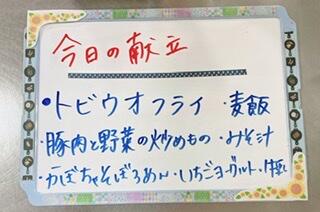 今日の献立
・トビウオフライ ・麦飯
・豚肉と野菜の炒めもの ・みそ汁
・かぼちゃそぼろあん ・いちごヨーグルト ・牛乳